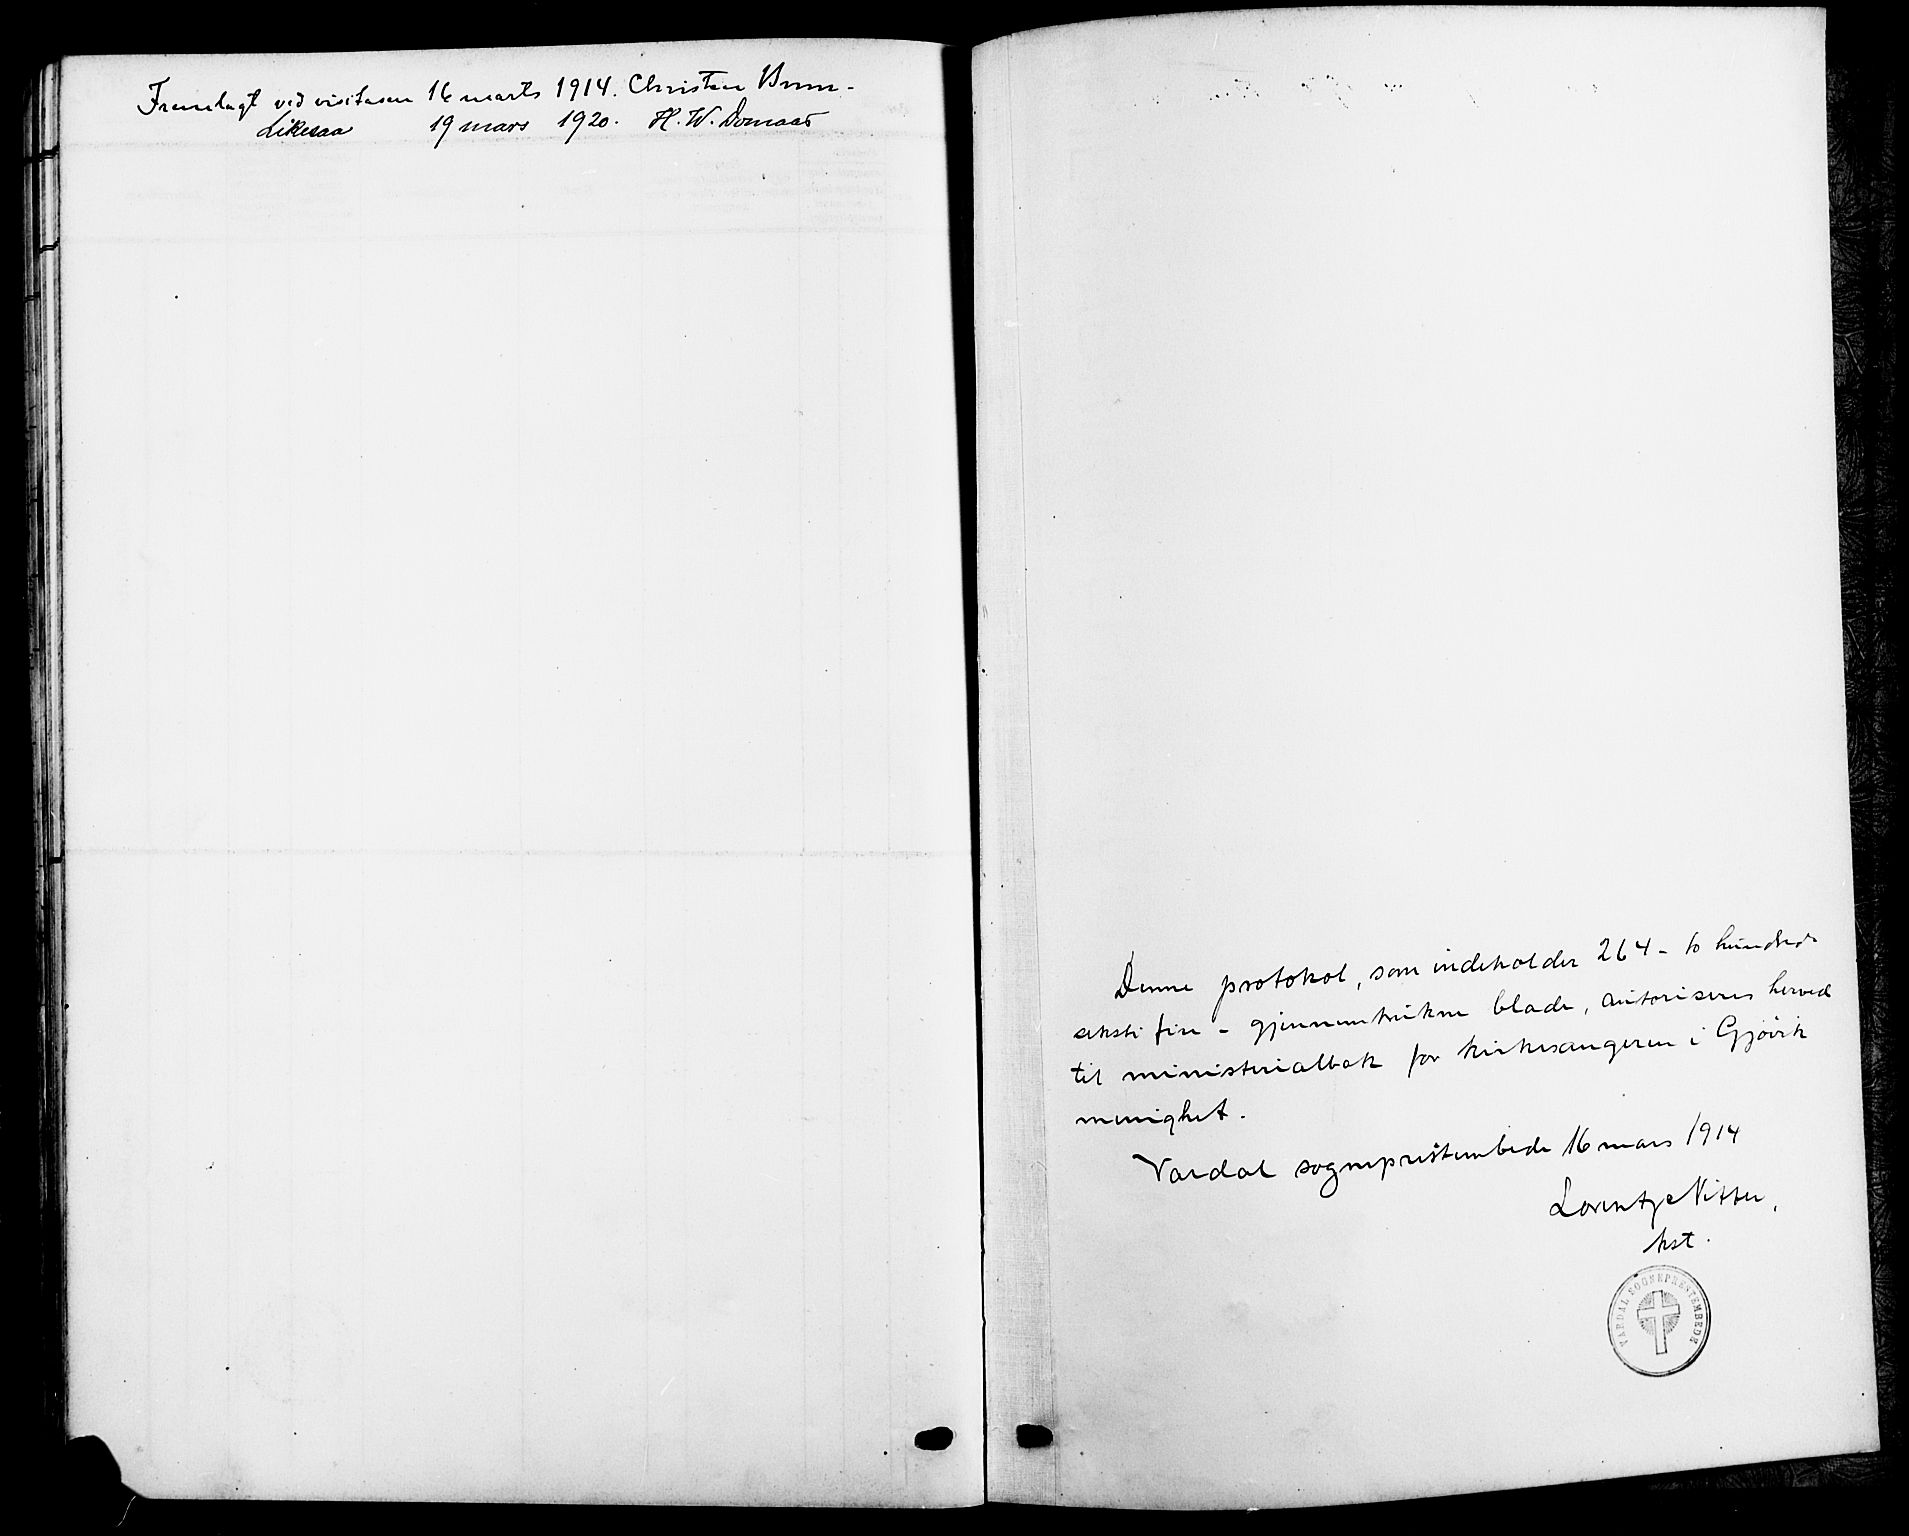 Fremlagt ved visitasen 16 marts 1914. Christen Brun -
Likesaa 19 mars 1920. H. W. Domaas
Denne protokol, som indeholder 264 - to hundrede
seksti fire - gjennemtrukne blade, autoriseres herved
til ministerialbok for kirkesangeren i Gjøvik
menighet.
Vardal sogneprestembede 16 mars 1914
Lorentz Nitter,
kst.
VARDAL SOGNEPRESTEMBEDE